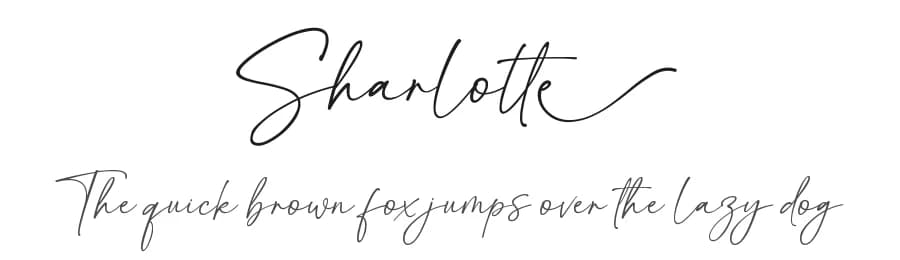 Sharlotte
The quick brown fox jumps over the lazy dog